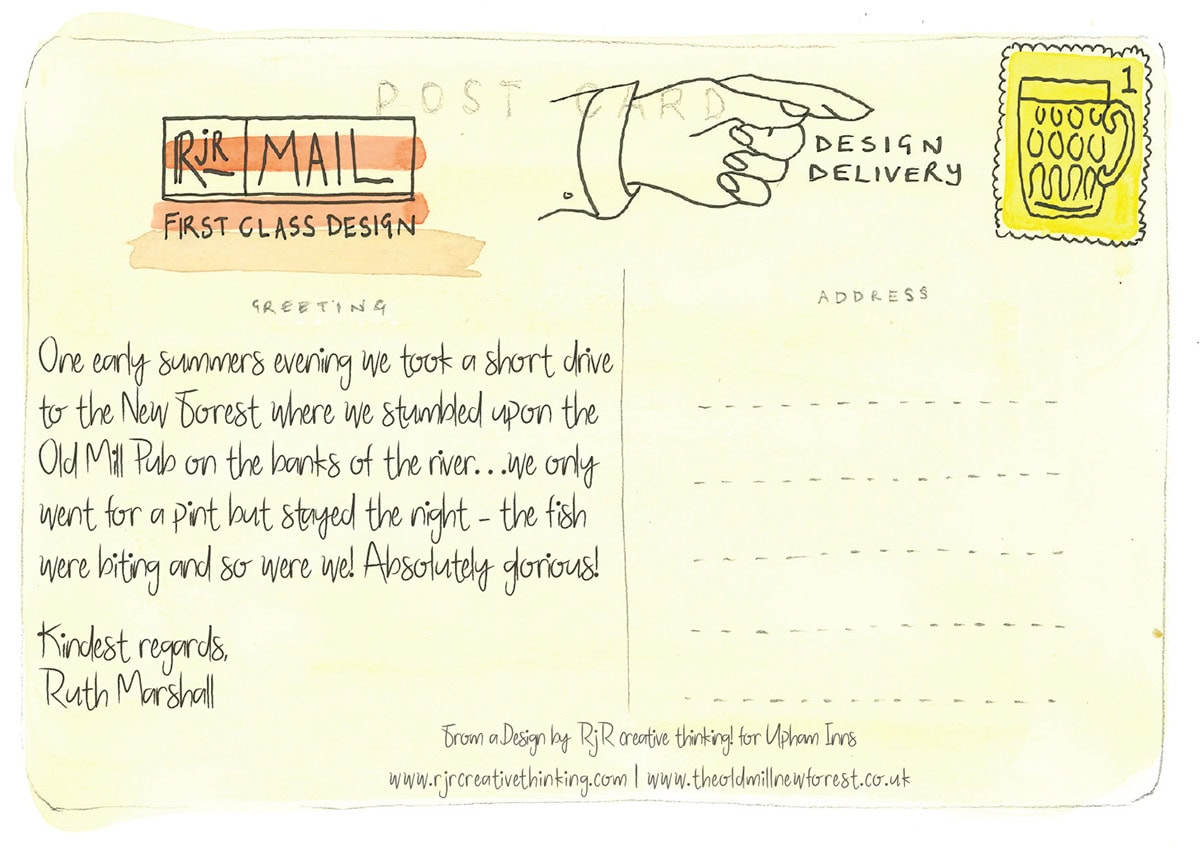 POST CARD
RJR MAIL
FIRST CLASS DESIGN
DESIGN
DELIVERY
1
GREETING
One early summers evening we took a short drive
to the New Forest where we stumbled upon the
Old Mill Pub on the banks of the river...we only
went for a pint but stayed the night - the fish
were biting and so were we! Absolutely glorious!
Kindest regards,
Ruth Marshall
ADDRESS
From a Design by RjR creative thinking! for Upham Inns
www.rjrcreativethinking.com | www.theoldmillnewforest.co.uk